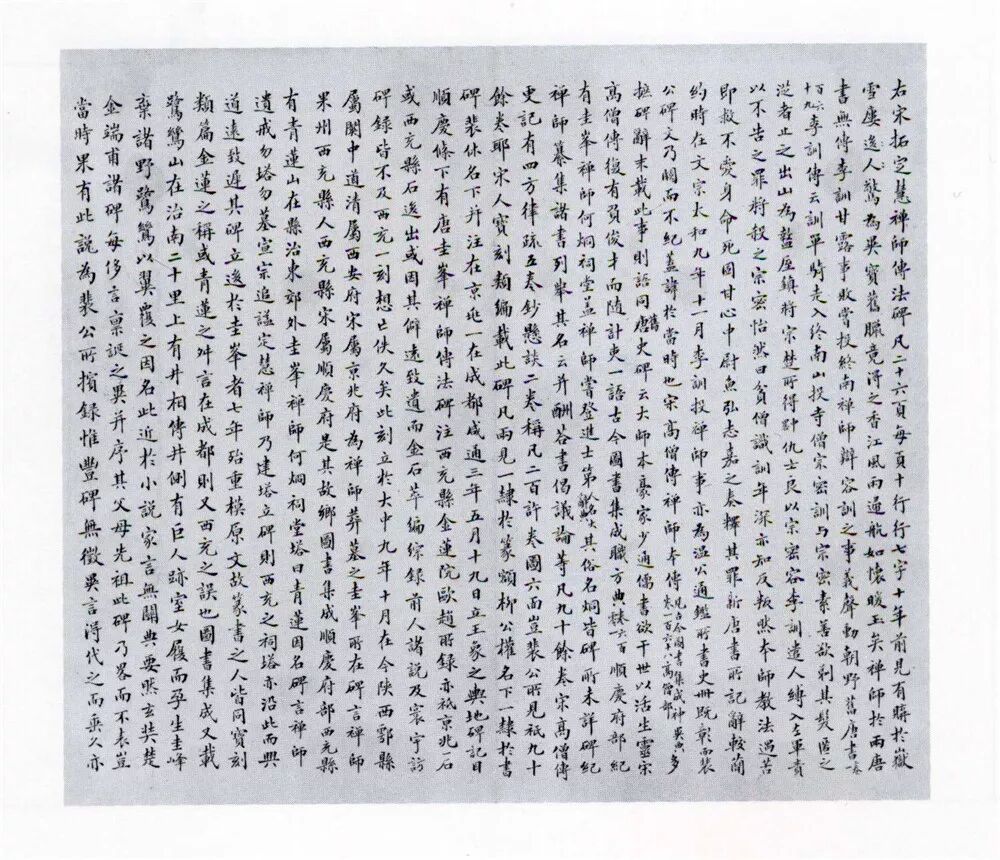 右宋拓定慧禪師傳法碑凡二十六頁每頁十行行七字十年前見有購於嶽
雪廬逸人驚為吳寶舊臘竟得之香江風雨通航如懷暖玉矣禪師於兩唐
書無傳李訓甘露事敗嘗投終南禪師辯容訓之事義聲動朝野舊唐書卷一
百六十九李訓傳云訓單騎走入終南山投寺僧宗密訓與宗密素善欲剃其髮匿之
從者止之出山為盩厔鎮將宗楚所得尉仇士良以宗密容李訓遣人縛入左軍責
以不告之罪將殺之宗密怡然曰貧僧識訓年深亦知反叛然本師教法遇苦
即救不愛身命死固甘心中尉魚弘志嘉之奏釋其罪新唐書所記辭較簡
約時在文宗太和九年十一月李訓投禪師事亦為溫公通鑑所書史冊既彰而裴
公碑文乃闕而不紀蓋諱於當時也宋高僧傳禪師本傳見古今圖書集成神異典卷一百六十六高僧部多
摭碑辭末載此事則語同舊唐史碑云大師本豪家少通儒書欲干世以活生靈宋
高僧傳復有負俊才而隨計吏一語古今圖書集成職方典棟六百順慶府部紀
有圭峯禪師何炯祠堂蓋禪師嘗登進士第其俗名炯皆碑所未詳碑紀
禪師纂集諸書列舉其名云并酬答書偈議論等凡九十餘卷宋高僧傳
更記有四方律疏五卷鈔懸談二卷稱凡二百許卷圖六面豈裴公所見祇九十
餘卷耶宋人寶刻類編載此碑凡兩見一隸於篆額柳公權名下一隸於書
碑裴休名下并注在京兆一在成都咸通三年五月十九日立王象之輿地碑記目
順慶條下有唐圭峯禪師傳法碑注西充縣金蓮院歐趙所錄亦祇京兆一石
或西充縣石逸出或因其僻遠致遺而金石萃編綜錄前人諸說及寰宇訪
碑錄皆不及西充一刻想亡佚久矣此刻立於大中九年十月在今陝西鄠縣
屬關中道清屬西安府宋屬京兆府為禪師葬墓之圭峯所在碑言禪師
果州西充縣人西充縣宋屬順慶府是其故鄉圖書集成順慶府部西充縣
有青蓮山在縣治東郊外圭峯禪師何炯祠堂塔曰青蓮因名碑言禪師
遺戒勿塔勿墓宣宗追謚定慧禪師乃建塔立碑則西充之祠塔亦沿此而興
道遠致遲其碑立逸於圭峯者七年殆重模原文故篆書之人皆同寶刻
類篇金蓮之稱或青蓮之舛言在成都則又西充之誤也圖書集成又載
鷟鸑山在治南二十里上有井相傳井側有巨人跡室女履而孕生圭峰
棄諸野鷟鸑以翼覆之因名此近於小說家言無關典要然玄奘楚
金端甫諸碑每侈言稟誕之異并序其父母先祖此碑乃畧而不表豈
當時果有此說為裴公所擯錄惟豐碑無徵吳言得代之而乘久亦